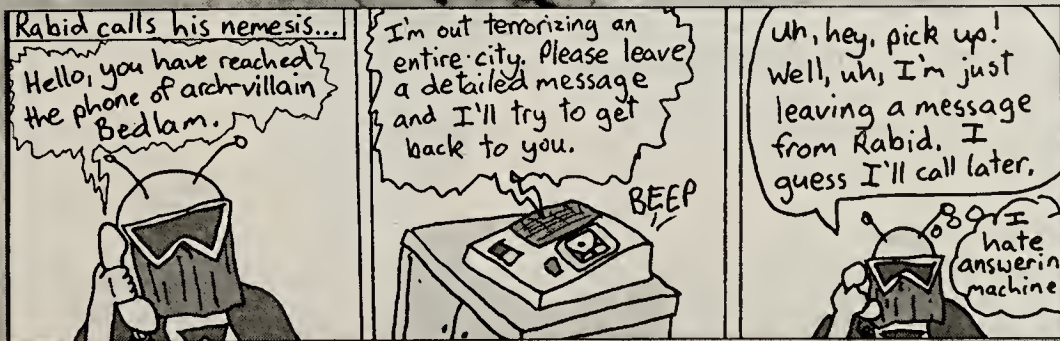 Rabid calls his nemesis...
Hello, you have reached
the phone of arch-villain
Bedlam.
I'm out terrorizing an
entire city. Please leave
a detailed message
and I'll try to get
back to you.
BEEP
Uh, hey, pick up!
Well, uh, I'm just
leaving a message
from Rabid. I
guess I'll call later.
I
hate
answerin
machine